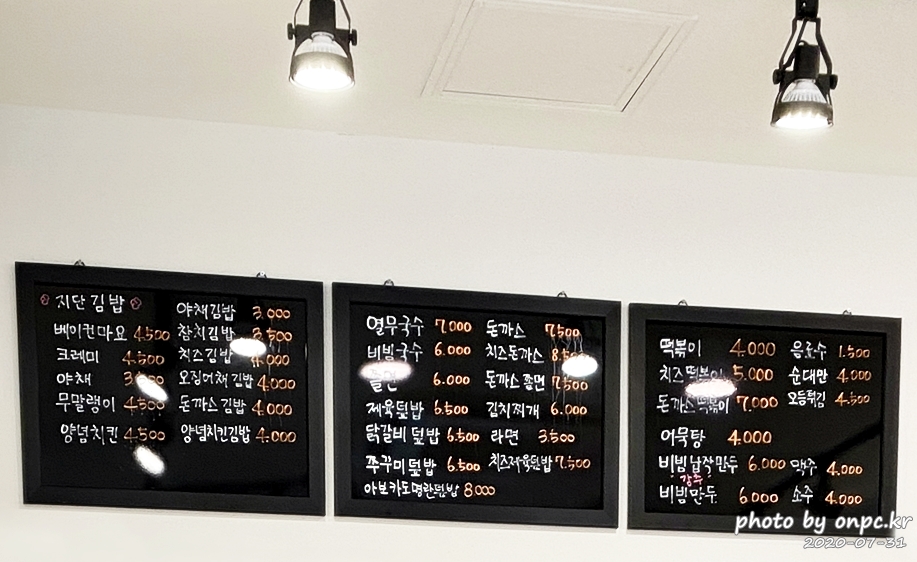 지단김밥
베이컨마요 4.500
크레미 4.500
야채
무말랭이 4.500
양념치킨 4.500
야채김밥 3.000
참치김밥 3.500
치즈김밥 4.000
오징어채김밥 4.000
돈까스김밥 4.000
양념치킨김밥 4.000
열무국수 7.000
비빔국수 6.000
쫄면 6.000
제육덮밥 6.500
닭갈비덮밥 6.500
쭈꾸미덮밥 6.500
아보카도명란덮밥 8.000
돈까스 7.500
치즈돈까스
돈까스쫄면 7.500
김치찌개 6.000
라면 3.500
치즈제육덮밥 7.500
떡볶이 4.000
치즈떡볶이 5.000
돈까스떡볶이 7.000
어묵탕 4.000
비빔납작만두 6.000
강추
비빔만두 6.000
음료수 1.500
순대만 4.000
모듬튀김 4.500
맥주 4.000
소주 4.000
photo by onpc.kr
2020-07-31